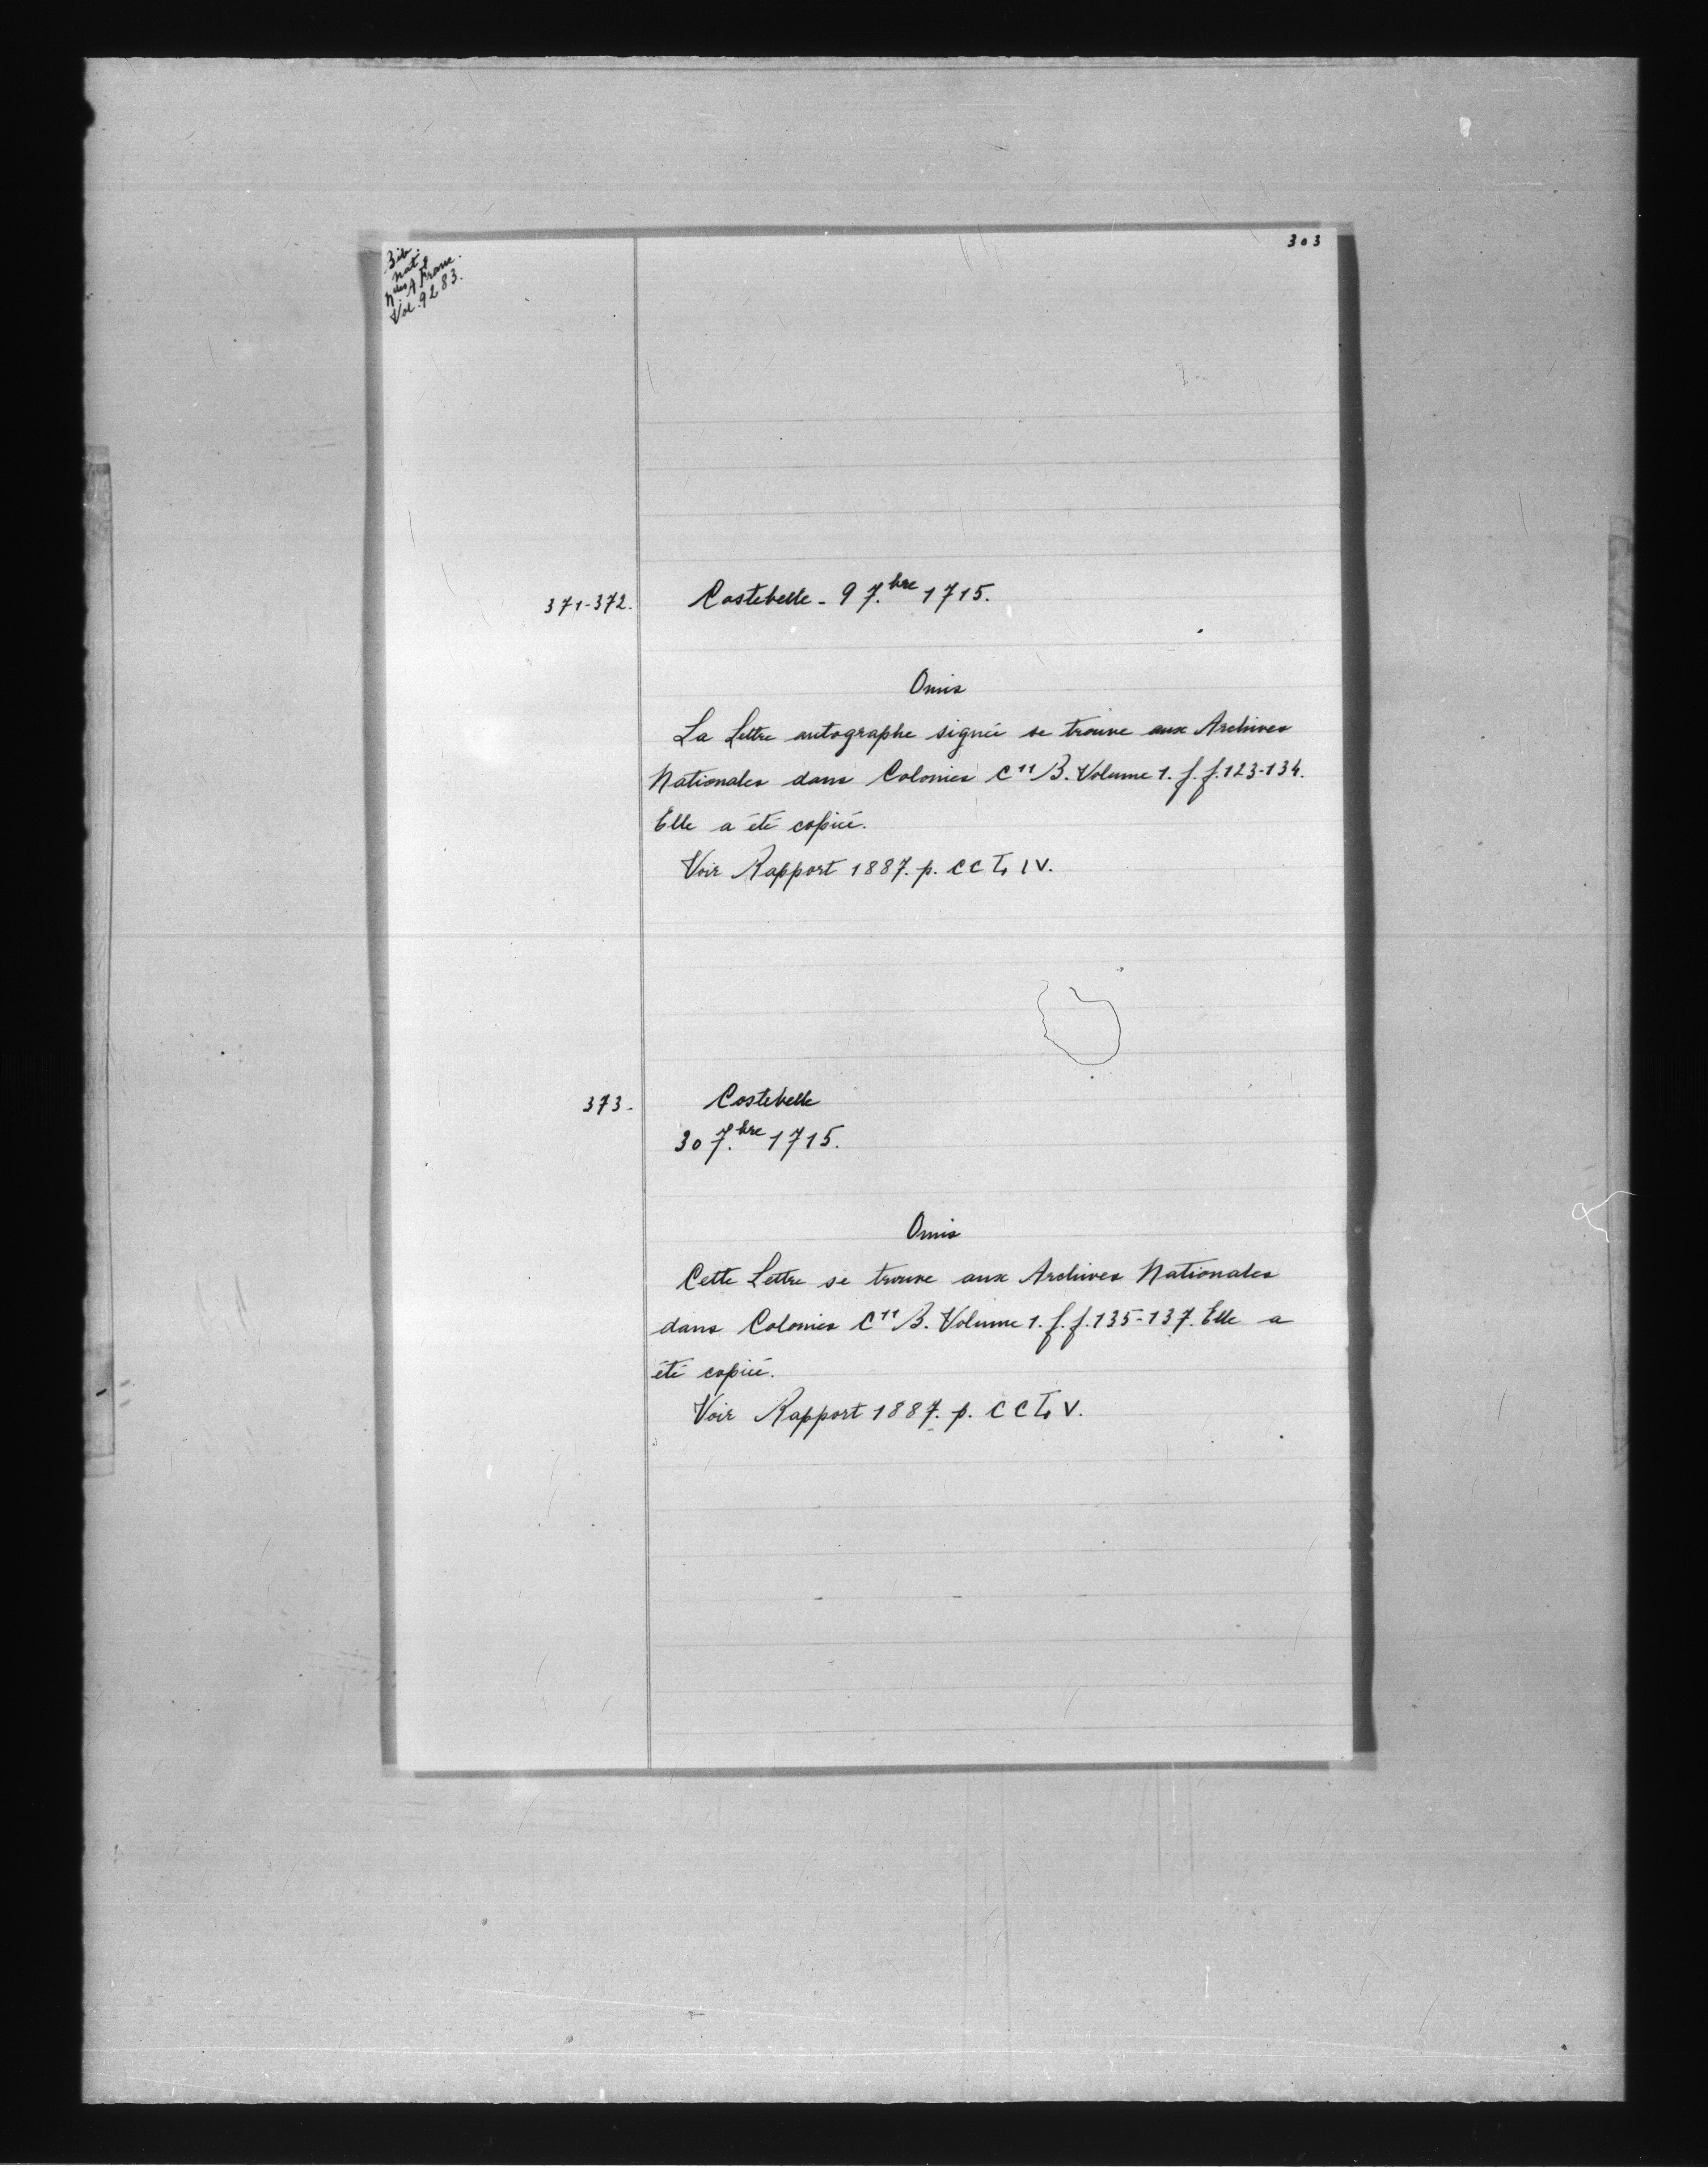 303
Bib.
Nat.
Nlles A. Franc.
Vol. 9283.
371-372. Costebelle - 9 7.bre 1715.
Omis
La Lettre autographe signée se trouve aux Archives
Nationales dans Colonies C11 B. Volume 1. f. f. 123-134.
Elle a été copiée.
Voir Rapport 1887. p. CCLIV.
373. Costebelle
30 7.bre 1715.
Omis
Cette Lettre se trouve aux Archives Nationales
dans Colonies C11 B. Volume 1. f. f. 135-137. Elle a
été copiée.
Voir Rapport 1887. p. CCLV.